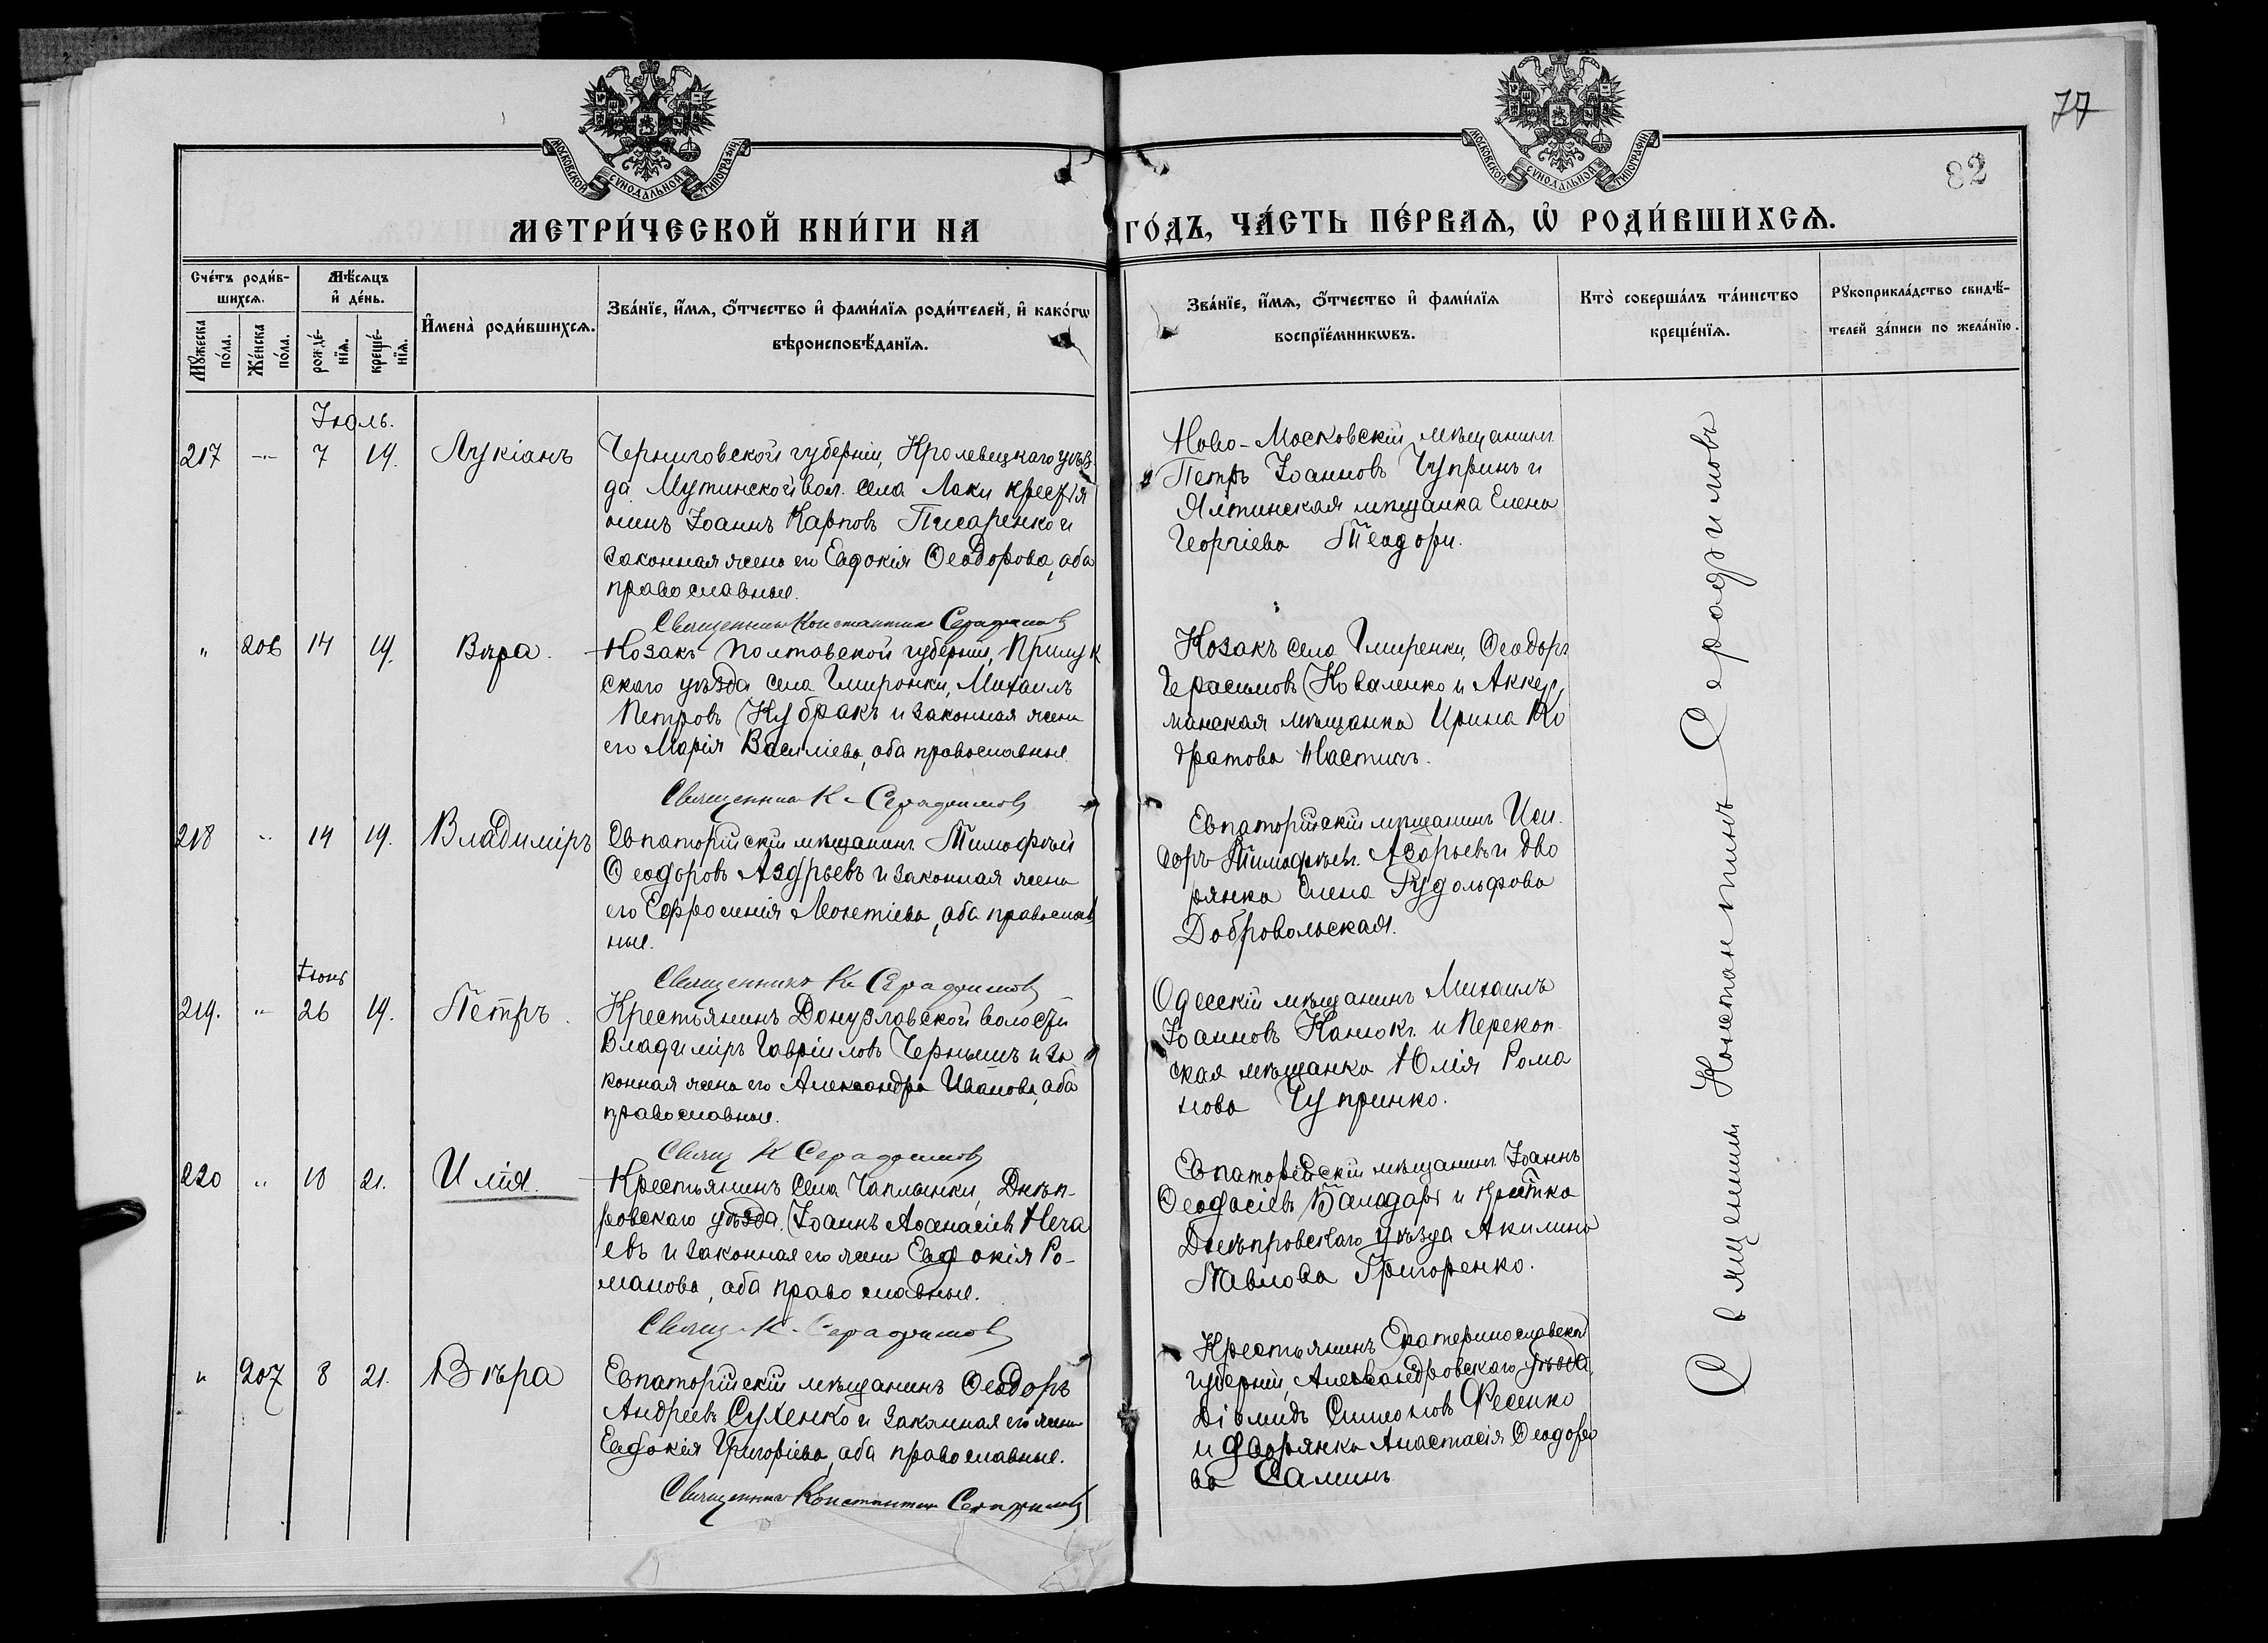 77
82
МОСКОВСКОЙ СУНОДАЛЬНОЙ ТИПОГРАФІИ
МОСКОВСКОЙ СУНОДАЛЬНОЙ ТИПОГРАФІИ
МЕТРИ́ЧЕСКОЙ КНИ́ГИ НА ГО́ДЪ, ЧА́СТЬ ПЕ́РВАѦ, Ѡ РОДИ́ВШИХСѦ.
Сче́тъ роди́в-
шихсѧ.
Мꙋ́жеска по́ла.
Же́нска по́ла.
Мѣ́сѧцъ
и де́нь.
рожде́-
нїѧ.
креще́-
нїѧ.
Имена̀ роди́вшихсѧ.
Зва́нїе, и́мѧ, о́тчество и фами́лїѧ роди́телей, и како́гѡ
вѣроисповѣ́данїѧ.
Зва́нїе, и́мѧ, о́тчество и фами́лїѧ
воспрїе́мникѡвъ.
Кто̀ соверша́лъ та́инство
креще́нїѧ.
Рꙋкоприкла́дство свидѣ́-
телей за́писи по жела́нїю.
Іюль.
217 -"- 7 19. Лукіанъ
Черниговской губерніи, Кролевецкаго уѣз
да Мутинской вол. села Лаки крестья
нинъ Іоаннъ Карповъ Писаренко и
законная жена его Евдокія Ѳеодорова, оба
православные.
Священникъ Константинъ Серафимовъ
Ново-Московскій мѣщанинъ
Петръ Іоанновъ Чупринъ и
Ялтинская мѣщанка Елена
Георгіева Теодори.
" 206 14 19. Вѣра.
Козакъ Полтавской губерніи, Прилук
скаго уѣзда села Гмиронки, Михаилъ
Петровъ Кубракъ и законная жена
его Марія Василіева, оба православные.
Священникъ К. Серафимовъ
Козакъ села Гмиренки, Ѳеодоръ
Герасимовъ Коваленко и Аккер
манская мѣщанка Ирина Ко
дратова Настичъ.
218 " 14 19. Владиміръ
Евпаторійскій мѣщанинъ Тимофѣй
Ѳеодоровъ Азарьевъ и законная жена
его Ефросинія Леонтіева, оба православ
ные.
Священникъ К. Серафимовъ
Евпаторійскій мѣщанинъ Иси
доръ Тимофѣевъ Азарьевъ и дво
рянка Елена Рудольфова
Добровольская.
Іюнь
219. " 26 19. Петръ.
Крестьянинъ Донузлавской волости
Владиміръ Гавріиловъ Чернышъ и за
конная жена его Александра Иванова, оба
православные.
Свящ К Серафимовъ
Одесскій мѣщанинъ Михаилъ
Іоанновъ Канюкъ и Перекоп
ская мѣщанка Юлія Рома
нова Чупринко.
220 " 10 21. Илія.
Крестьянинъ села Чаплынки, Днѣп-
ровскаго уѣзда. Іоаннъ Аѳанасіевъ Неча
евъ и законная его жена Евдокія Ро-
манова, оба православные.
Свящ. К. Серафимовъ
Евпаторійскій мѣщанинъ Іоаннъ
Ѳеодосіевъ и крестка
Днѣпровскаго уѣзда Акилина
Павлова Григоренко.
" 207 8 21. Вѣра
Евпаторійскій мѣщанинъ Ѳеодоръ
Андреевъ Сухенко и законная его жена
Евдокія Григоріева, оба православные.
Священникъ Константинъ Серафимовъ
Крестьянинъ Екатеринославской
губерніи, Александровскаго уѣзда,
Діомидъ Симоновъ Фесенко
и дворянка Анастасія Ѳеодоро
ва Саминъ
Священникъ Константинъ Серафимовъ